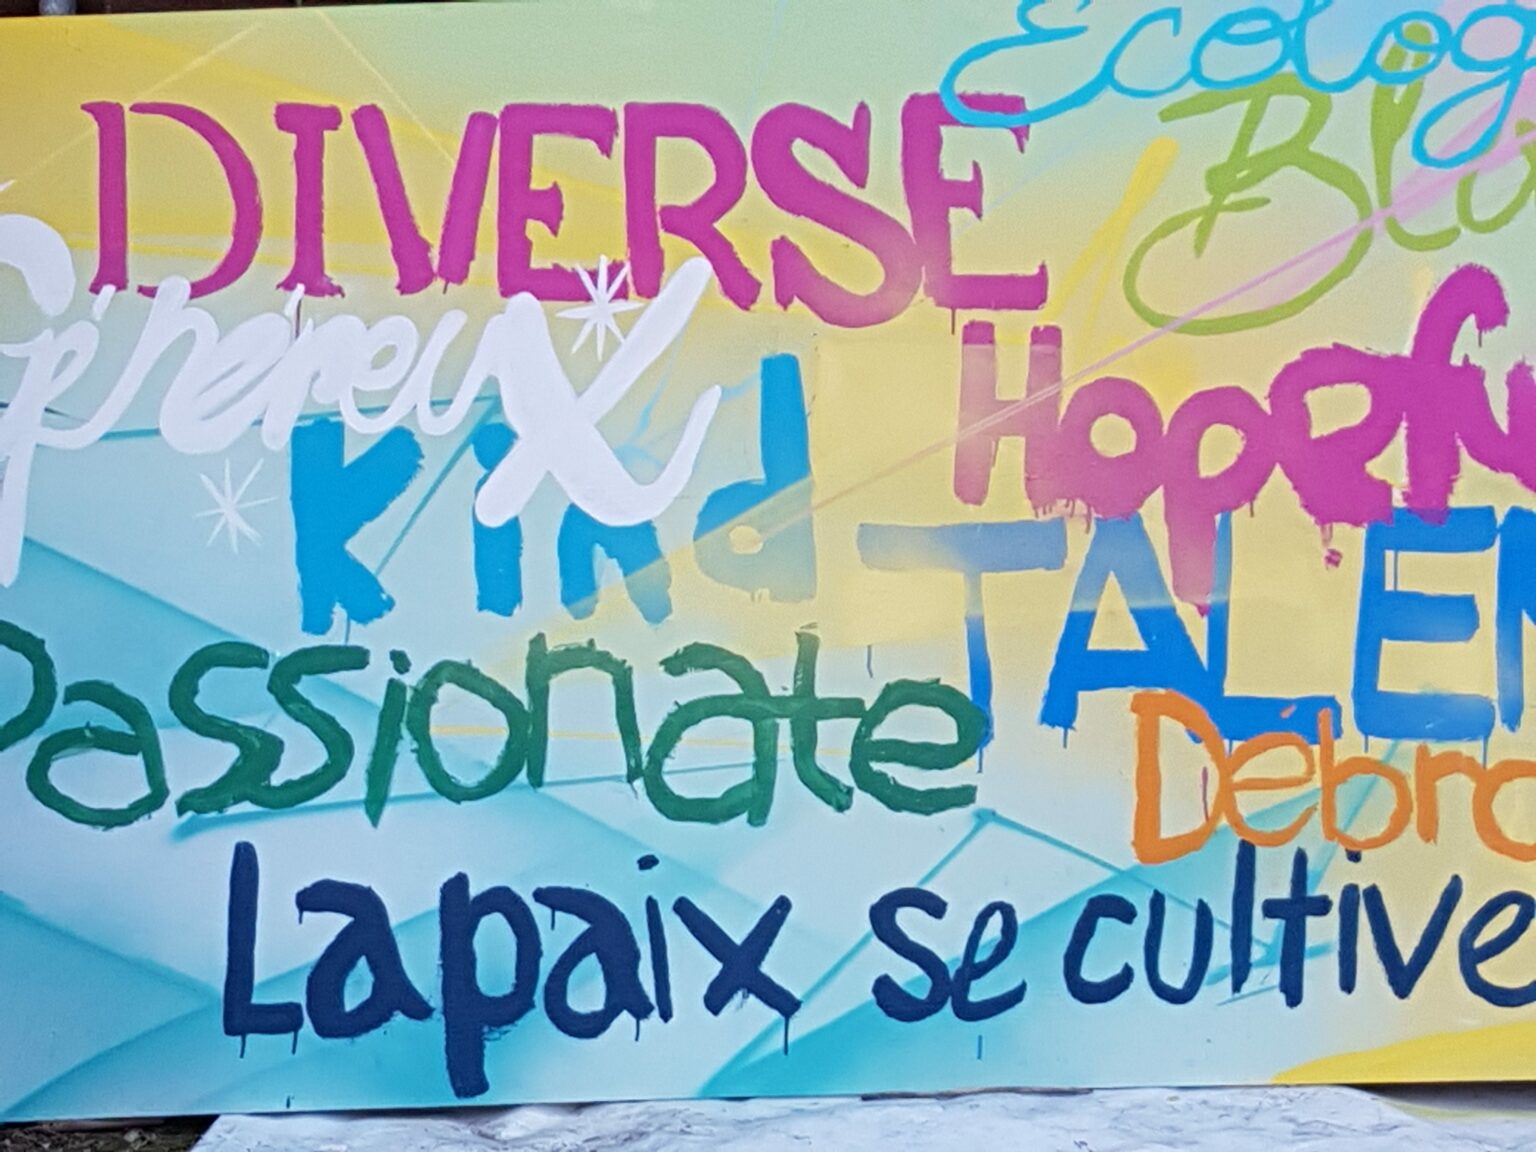 Ecolog
DIVERSE
Blo
Généreux
Hopefu
Kind
TALEN
Passionate
Débro
La paix se cultive